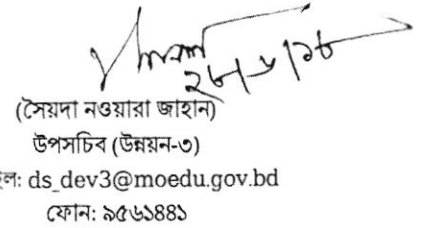 ২৮/৬/১৮
(সৈয়দা নওয়ারা জাহান)
উপসচিব (উন্নয়ন-৩)
ইল: ds_dev3@moedu.gov.bd
ফোন: ৯৫৬১৪৪১